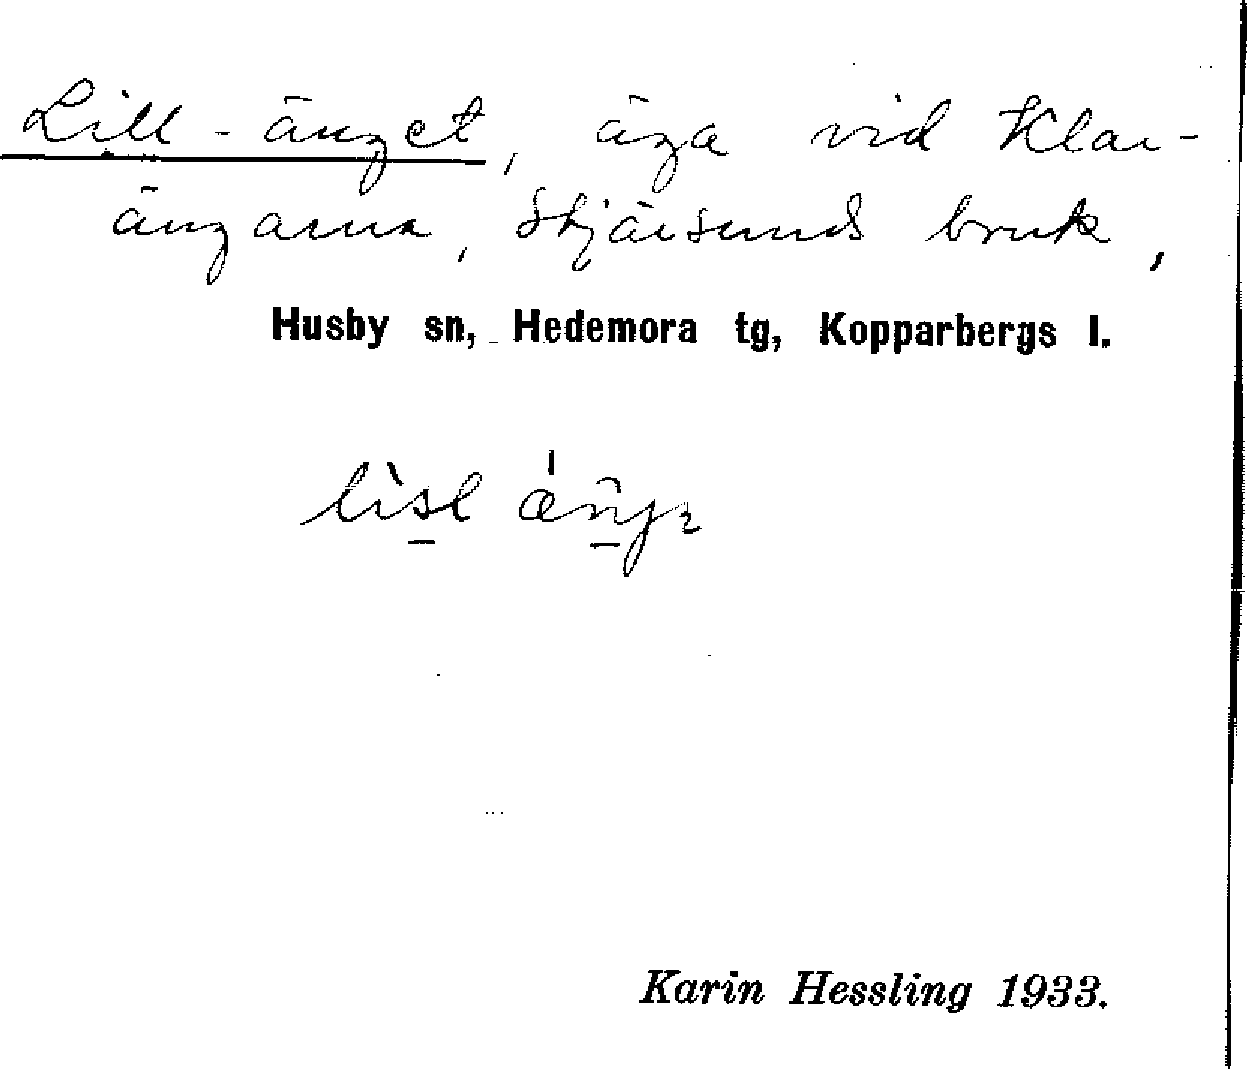 Lill-änget, äga vid Klar-
ängarna, Stjärsunds bruk,
Husby sn, Hedemora tg, Kopparbergs l.
Karin Hessling 1933.